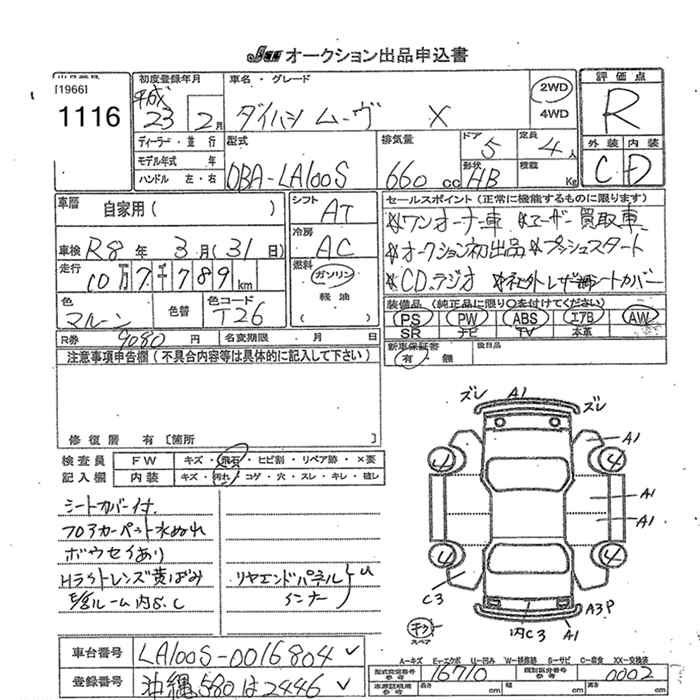 オークション出品申込書
[1966]
1116
初度登録年月
平成
23 2月
車名・グレード
ダイハツ ムーヴ X
2WD
4WD
評価点
R
外装 内装
C D
ディーラー・並行
モデル年式 年
ハンドル 左・右
型式
DBA-LA100S
排気量
660 cc
ドア
5
形状
HB
定員
4 人
積載
Kg
車歴 自家用( )
車検 R8 年 3 月(31 日)
走行 10万7千789 km
色 マルーン
色替
色コード
T26
R券 9080 円
名変期限 月 日
シフト
AT
冷房
AC
燃料
ガソリン
軽油
( )
セールスポイント(正常に機能するものに限ります)
※ワンオーナー車 ※ユーザー買取車
※オークション初出品 ※プッシュスタート
※CDラジオ ※社外レザー調シートカバー
装備品(純正品に限り○を付けてください)
PS PW ABS エアB AW
SR ナビ TV 本革
新車保証書
有・無
後日品
注意事項申告欄(不具合内容等は具体的に記入して下さい)
修復歴 有[箇所 ]
検査員
記入欄
FW キズ・飛石・ヒビ割・リペア跡・×要
内装 キズ・汚れ・コゲ・穴・スレ・キレ・破レ
シートカバー付
フロアカーペット水ぬれ
ボウセイあり
Hライトレンズ黄ばみ
ルーム内S.C
リヤエンドパネル
インナー
U
ズレ A1 ズレ
A1
4 4
A1
A1
4 4
C3
キズ
スペア
内C3
A3P
A1
車台番号 LA100S-0016804
登録番号 沖縄580は2446
A=キズ E=エクボ U=凹み W=補修跡 S=サビ C=腐食 XX=交換済
型式指定番号
参考
16710
類別区分番号
参考
0002
車源届区分
参考
cm
cm
cm